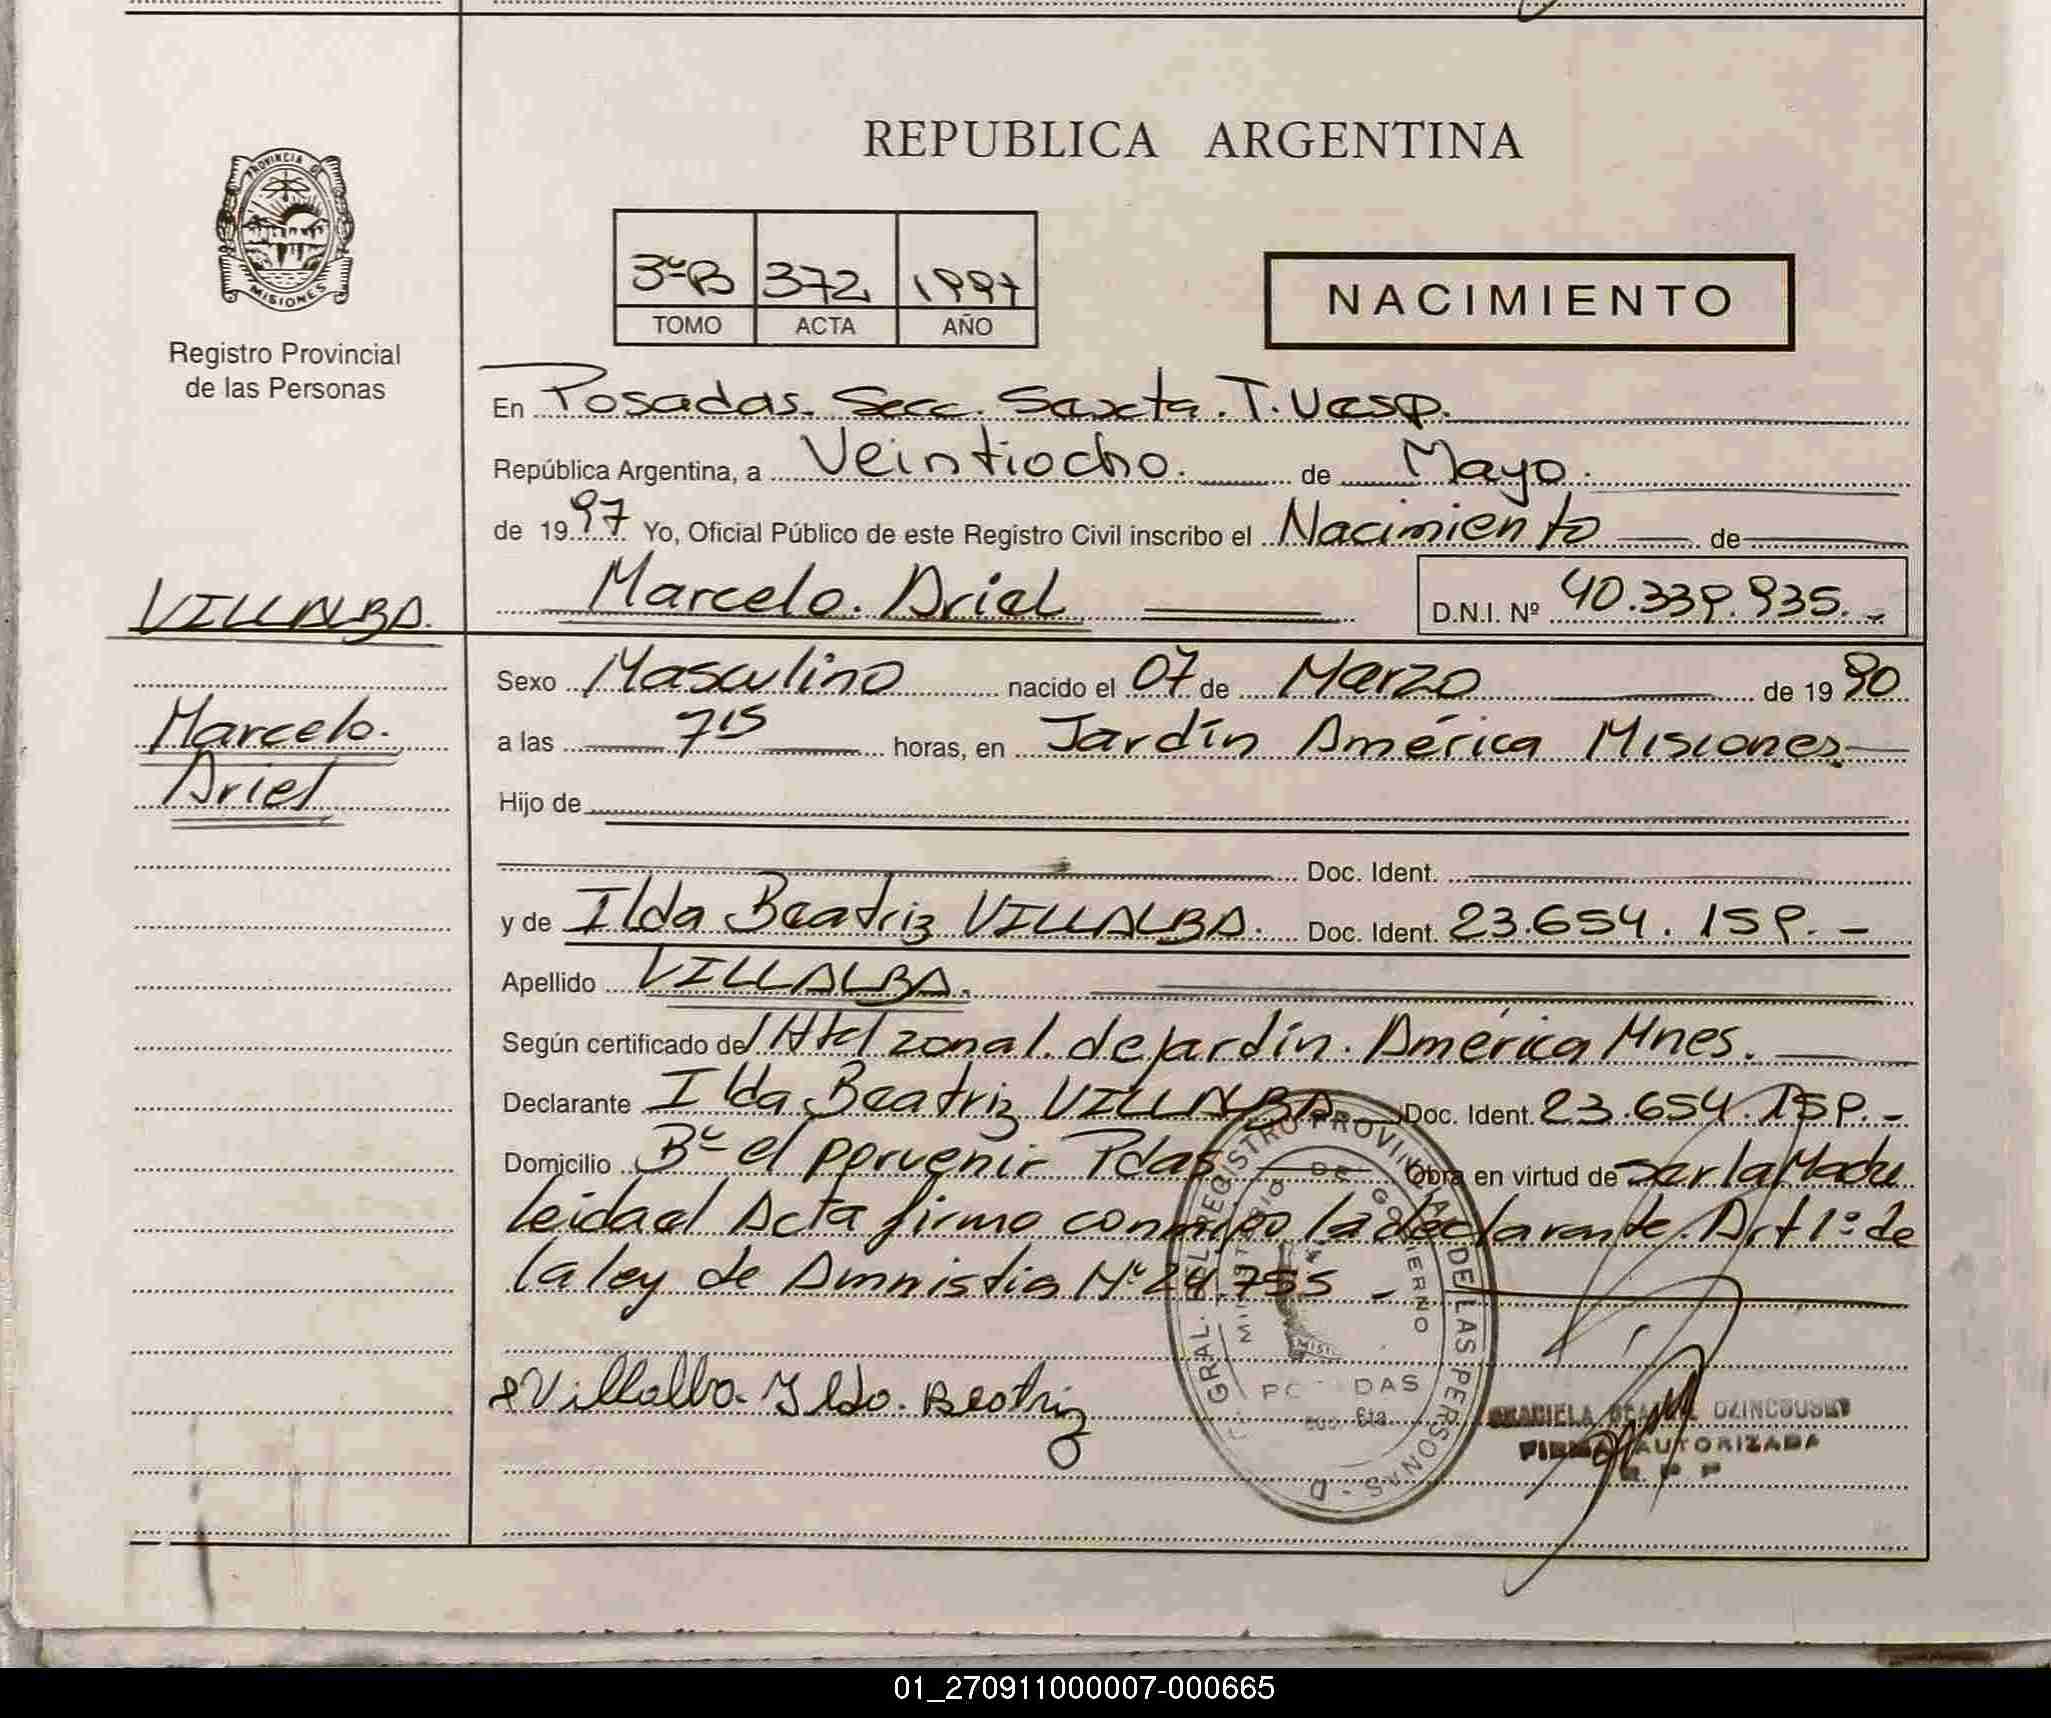 REPUBLICA ARGENTINA
PROVINCIA DE MISIONES
Registro Provincial
de las Personas
3º B 372 1997
TOMO ACTA AÑO
NACIMIENTO
En Posadas. Secc. Sexta. T. Vesp.
República Argentina, a Veintiocho. de Mayo.
de 1997 Yo, Oficial Público de este Registro Civil inscribo el Nacimiento de
VILLALBA.
Marcelo.
Ariel
Marcelo. Ariel D.N.I. Nº 40.339.935.-
Sexo Masculino nacido el 07 de Marzo de 1990
a las 7 15 horas, en Jardín América Misiones
Hijo de
Doc. Ident.
y de Ilda Beatriz VILLALBA. Doc. Ident. 23.654.159.-
Apellido VILLALBA.
Según certificado del Htal zonal. de jardín. América Mnes.
Declarante Ilda Beatriz VILLALBA Doc. Ident. 23.654.159.-
Domicilio Bº el porvenir Pdas Obra en virtud de ser la Madre
leida el Acta firmo conmigo la declarante. Art 1º de
la ley de Amnistia Nº 24.755 -
Villalba. Ilda. Beatriz
GRAL. DEL REGISTRO PROVINCIAL DE LAS PERSONAS - D
MINISTERIO DE GOBIERNO
6ta.
GRACIELA
FIRMA AUTORIZADA
01_270911000007-000665